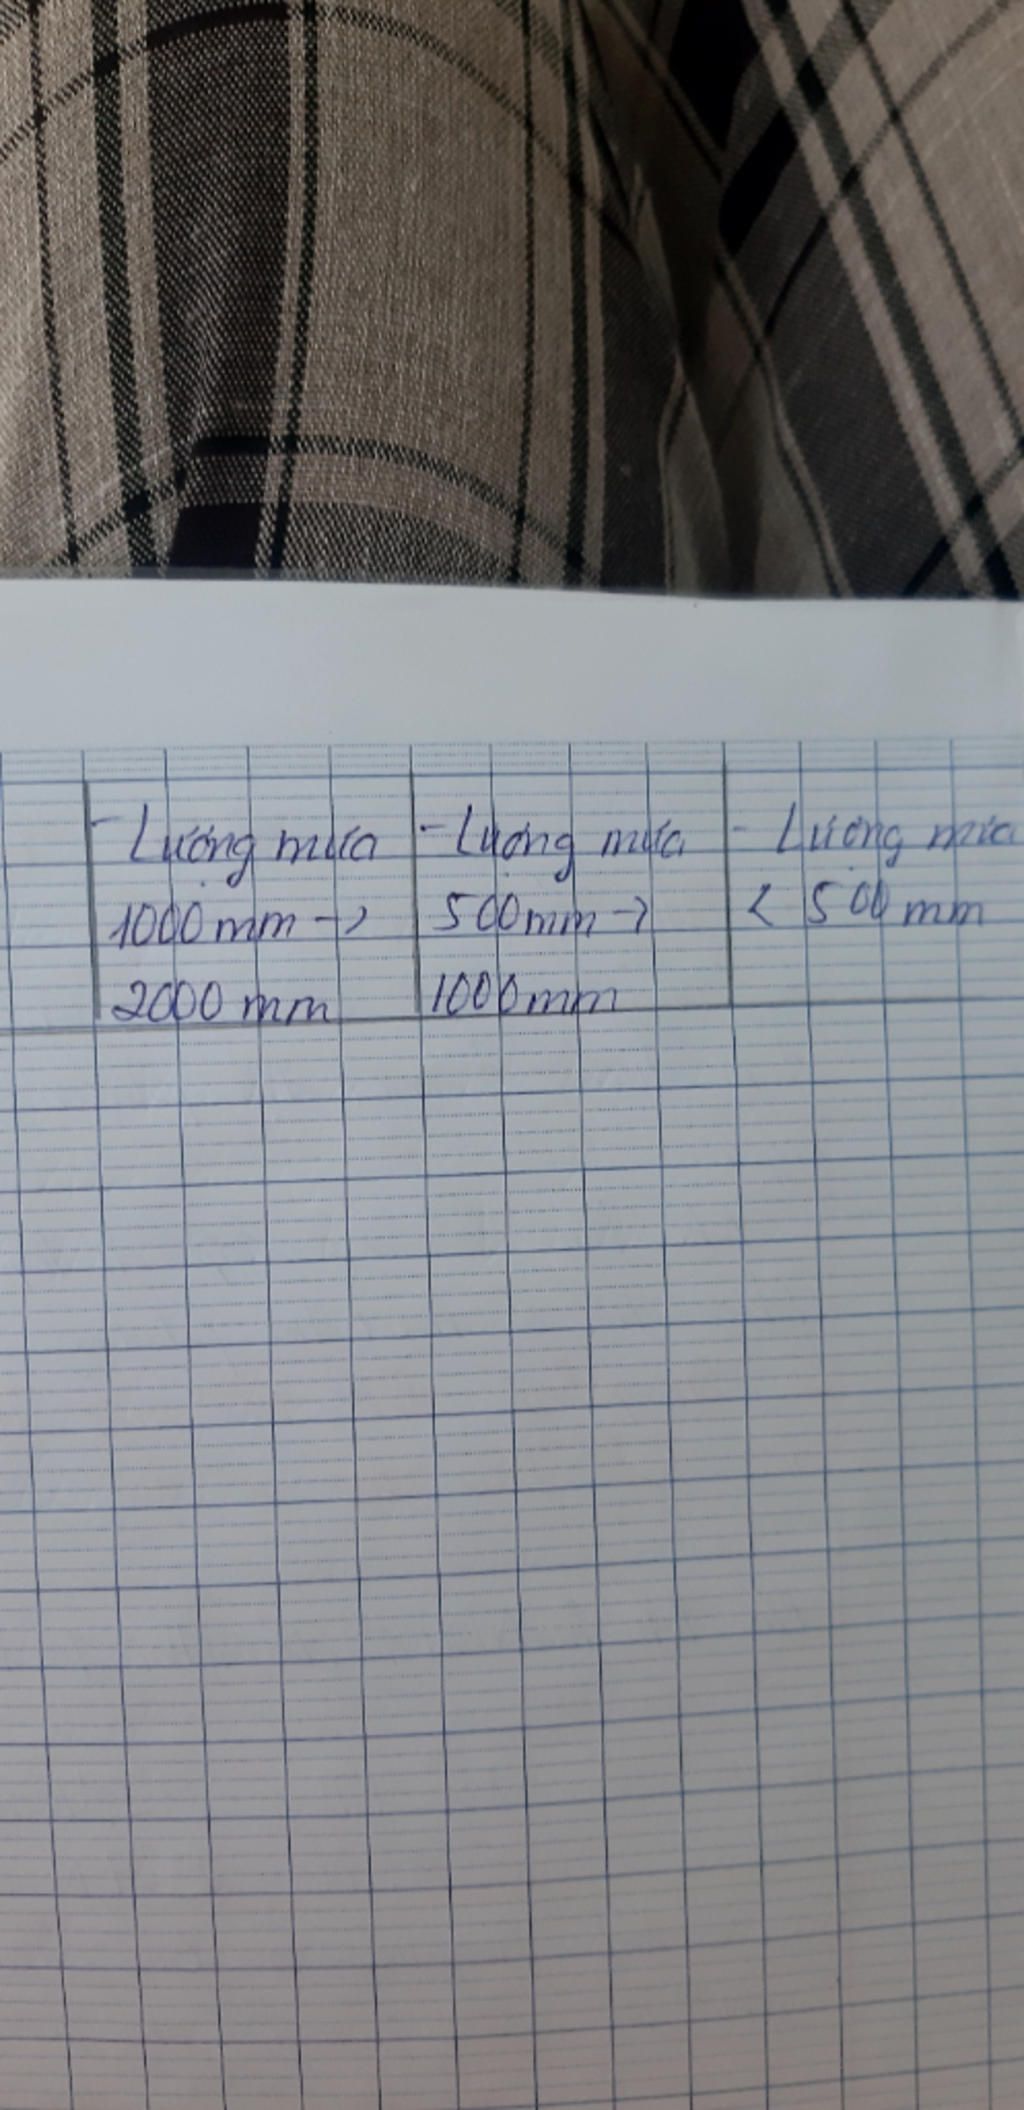 - Lượng mưa
1000 mm ->
2000 mm
- Lượng mưa
500mm ->
1000mm
- Lượng mưa
< 500 mm